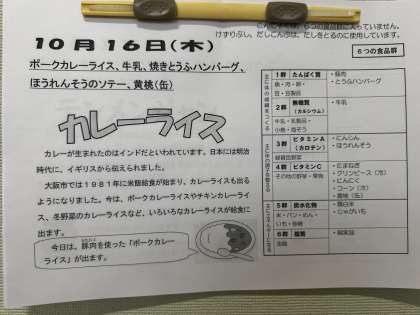 は、6つの食品群に入っていません。
けずりぶし、だしこんぶは、だしをとるのに使用しています。
10月16日(木)
6つの食品群
ポークカレーライス、牛乳、焼きとうふハンバーグ、
ほうれんそうのソテー、黄桃(缶)
カレーライス
カレーが生まれたのはインドだといわれています。日本には明治
時代に、イギリスから伝えられました。
大阪市では1981年に米飯給食が始まり、カレーライスも出る
ようになりました。今は、ポークカレーライスやチキンカレーライ
ス、冬野菜のカレーライスなど、いろいろなカレーライスが給食に
出ます。
今日は、豚肉を使った「ポークカレー
ライス」が出ます。
1群 たんぱく質
魚・肉・卵・
豆・豆製品
・豚肉
・とうふハンバーグ
2群 無機質
(カルシウム)
牛乳・乳製品・
小魚・海そう
・牛乳
3群 ビタミンA
(カロテン)
緑黄色野菜
・にんじん
・ほうれんそう
4群 ビタミンC
その他の野菜・果物
・たまねぎ
・グリンピース(冷)
・にんにく
・コーン(冷)
・黄桃(缶)
5群 炭水化物
米・パン・めん・
いも・砂糖
・精白米
・じゃがいも
6群 脂質
油脂
・綿実油